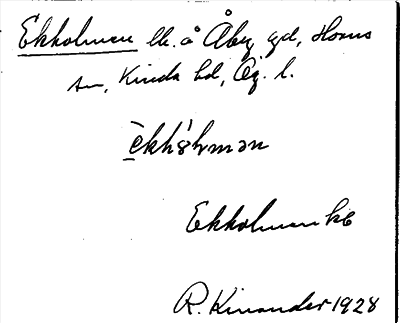 Ekkolmen lh. å Åby gd, Horns
sn, Kinda hd, Ög. l.
èkhólmən
Ekkolmen kb
R. Kinander 1928